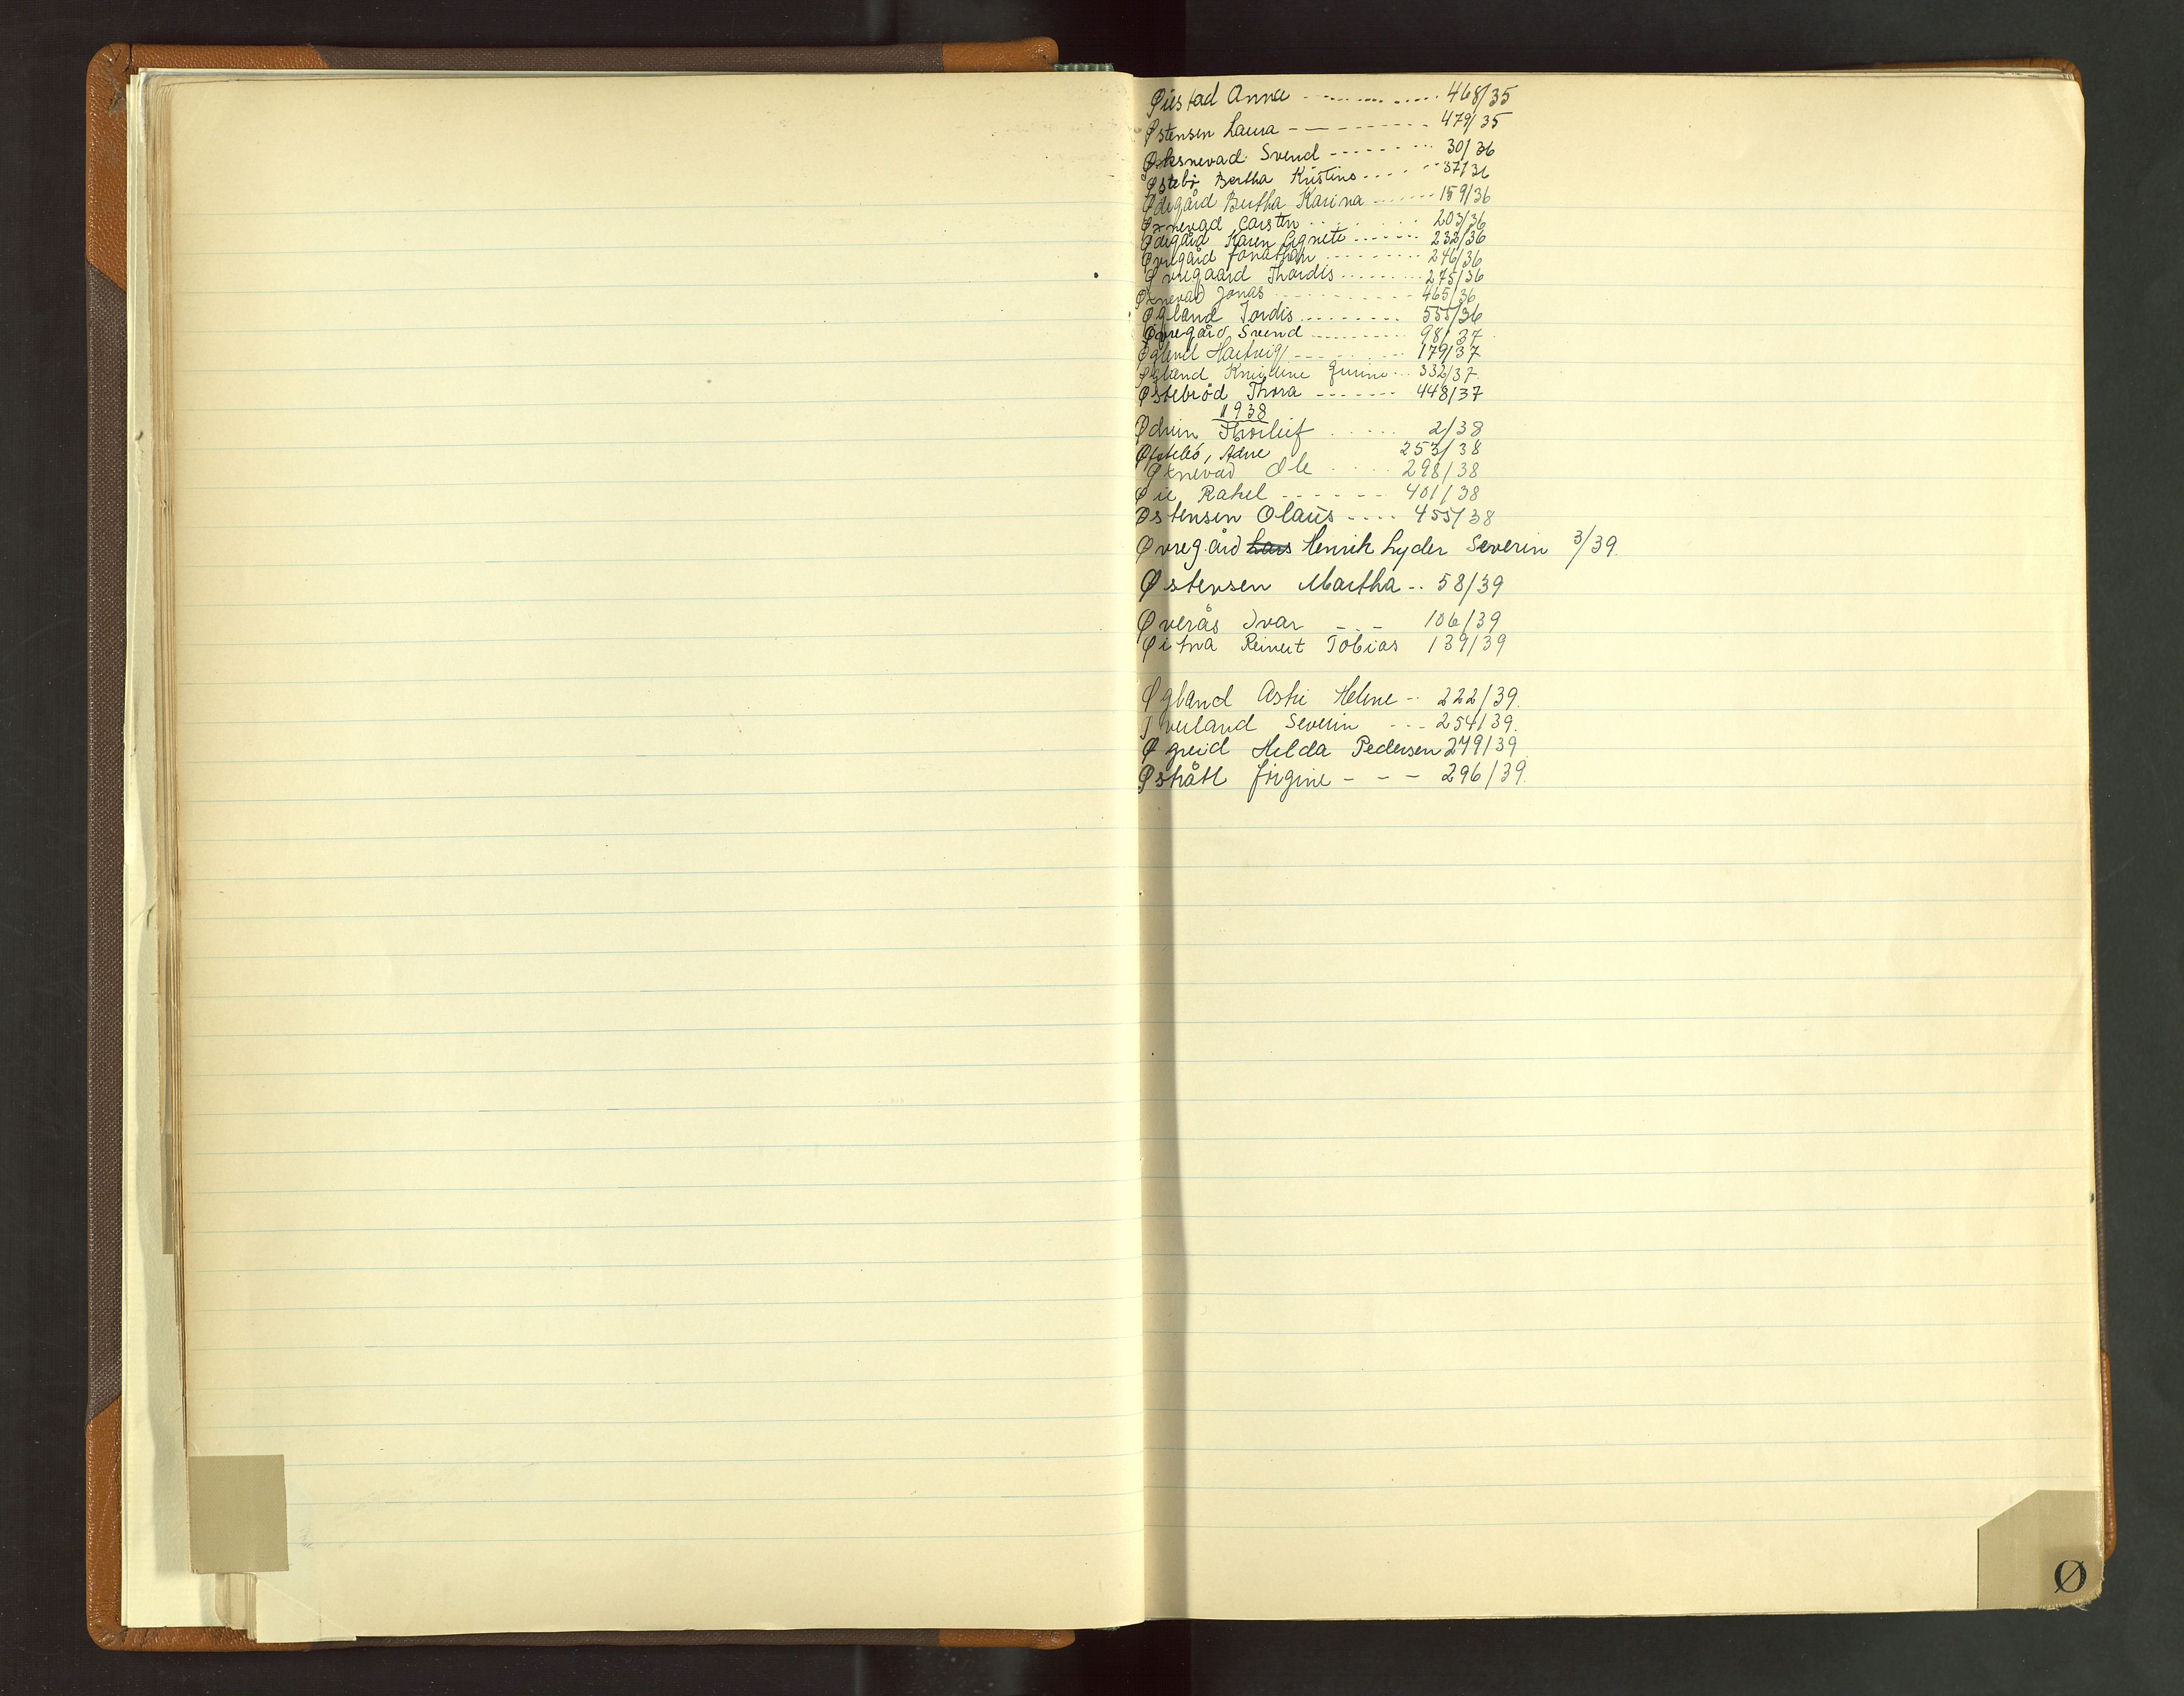 Øiestad Anna - - - - - - - - 468/35
Østensen Laura - - - - - - - - 479/35
Øksnevad Svend - - - - - - - 30/36
Østebø Bertha Kristine - - - - - 37/36
Ødegård Bertha Karina - - - - - 159/36
Øxnevad Carsten - - - - - - 203/36
Ødegård Karen Agnete - - - - - - 232/36
Øvregård Jonathan - - - - - - - 246/36
Øvregaard Thordis - - - - - - - 275/36
Øxnevad Jonas - - - - - - - 465/36
Øgland Tordis - - - - - - - 555/36
Øvregård, Svend - - - - - - - 98/37
Øglend Hartvig - - - - - - 179/37
Øgland - - - 332/37
Østebröd Thora - - - - - - 448/37
1938
Thorleif - - - - - 2/38
253/38
Øxnevad Ole - - - - 298/38
Øie Rakel - - - - - - 401/38
Østensen Olaus - - - - 455/38
Øvregård Lars Henrik Lyder Severin 3/39.
Østensen Martha - - 58/39
Øverås Ivar - - - 106/39
Reinert Tobias 139/39
Øgland Astri Helene - - 222/39.
Severin - - - 254/39.
Øgreid Hilda Pedersen 279/39
Østrått Jørgine - - - 296/39.
Ø